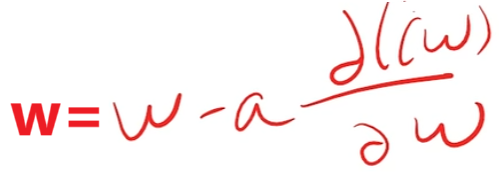 w= w - a ∂l(w)/∂w